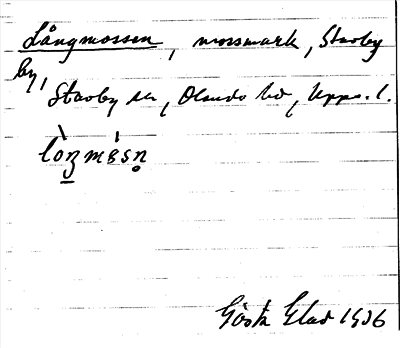 Långmossen, mossmark, Stavby
by,
Stavby sn, Olands hd, Upps. l.
lòŋmèsn̥
Gösta Glad 1936